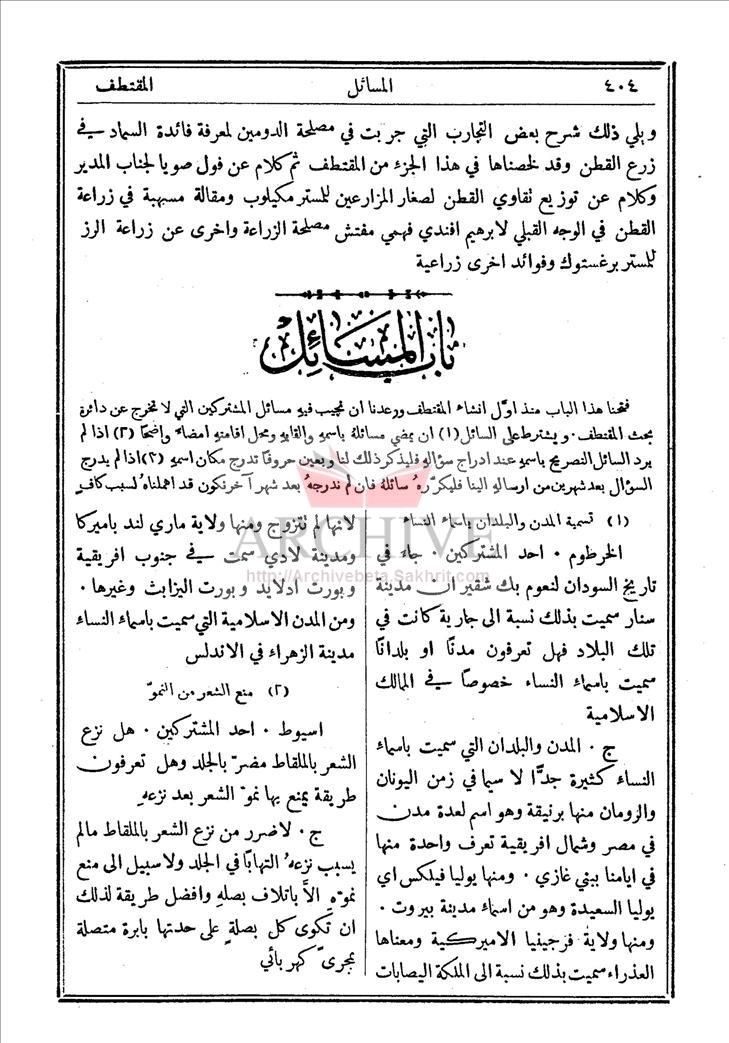 ٤٠٤
المسائل
المقتطف
ويلي ذلك شرح بعض التجارب التي جربت في مصلحة الدومين لمعرفة فائدة السماد في
زرع القطن وقد لخصناها في هذا الجزء من المقتطف ثم كلام عن فول صويا لجناب المدير
وكلام عن توزيع تقاوي القطن لصغار المزارعين للمستر مكيلوب ومقالة مسهبة في زراعة
القطن في الوجه القبلي لابرهيم افندي فهمي مفتش مصلحة الزراعة واخرى عن زراعة الرز
للمستر برغستوك وفوائد اخرى زراعية
باب المسائل
فتحنا هذا الباب منذ اوّل انشاء المقتطف ووعدنا ان نجيب فيهِ مسائل المشتركين التي لا تخرج عن دائرة
بحث المقتطف . ويشترط على السائل (١) ان يمضي مسائلهُ باسمهِ والقابهِ ومحل اقامتهِ امضاءً واضحًا (٢) اذا لم
يرد السائل التصريح باسمهِ عند ادراج سؤالهِ فليذكر ذلك لنا ويعين حروفًا تدرج مكان اسمهِ (٣) اذا لم يدرج
السؤال بعد شهرين من ارسالهِ الينا فليكرّرهُ سائلهُ فان لم ندرجهُ بعد شهر آخر نكون قد اهملناهُ لسبب كافٍ
(١) تسمية المدن والبلدان باسماء النساء
الخرطوم . احد المشتركين . جاءَ في
تاريخ السودان لنعوم بك شقير ان مدينة
سنار سميت بذلك نسبة الى جارية كانت في
تلك البلاد فهل تعرفون مدنًا او بلدانًا
سميت باسماء النساء خصوصًا في الممالك
الاسلامية
ج . المدن والبلدان التي سميت باسماء
النساء كثيرة جدًّا لا سيما في زمن اليونان
والرومان منها برنيقة وهو اسم لعدة مدن
في مصر وشمال افريقية تعرف واحدة منها
في ايامنا ببني غازي . ومنها يوليا فيلكس اي
يوليا السعيدة وهو من اسماء مدينة بيروت .
ومنها ولاية فرجينيا الاميركية ومعناها
العذراء سميت بذلك نسبة الى الملكة اليصابات
لانها لم تتزوج ومنها ولاية ماري لند باميركا
ومدينة لادي سمث في جنوب افريقية
وبورت ادلايد وبورت اليزابث وغيرها .
ومن المدن الاسلامية التي سميت باسماء النساء
مدينة الزهراء في الاندلس
(٢) منع الشعر من النموّ
اسيوط . احد المشتركين . هل نزع
الشعر بالملقاط مضرّ بالجلد وهل تعرفون
طريقة يمنع بها نموّ الشعر بعد نزعهِ
ج . لا ضرر من نزع الشعر بالملقاط ما لم
يسبب نزعهُ التهابًا في الجلد ولا سبيل الى منع
نموّهِ الاَّ باتلاف بصلهِ وافضل طريقة لذلك
ان تكوى كل بصلةٍ على حدتها بابرة متصلة
بمجرىً كهربائي
ARCHIVE
http://Archivebeta.Sakhrit.com